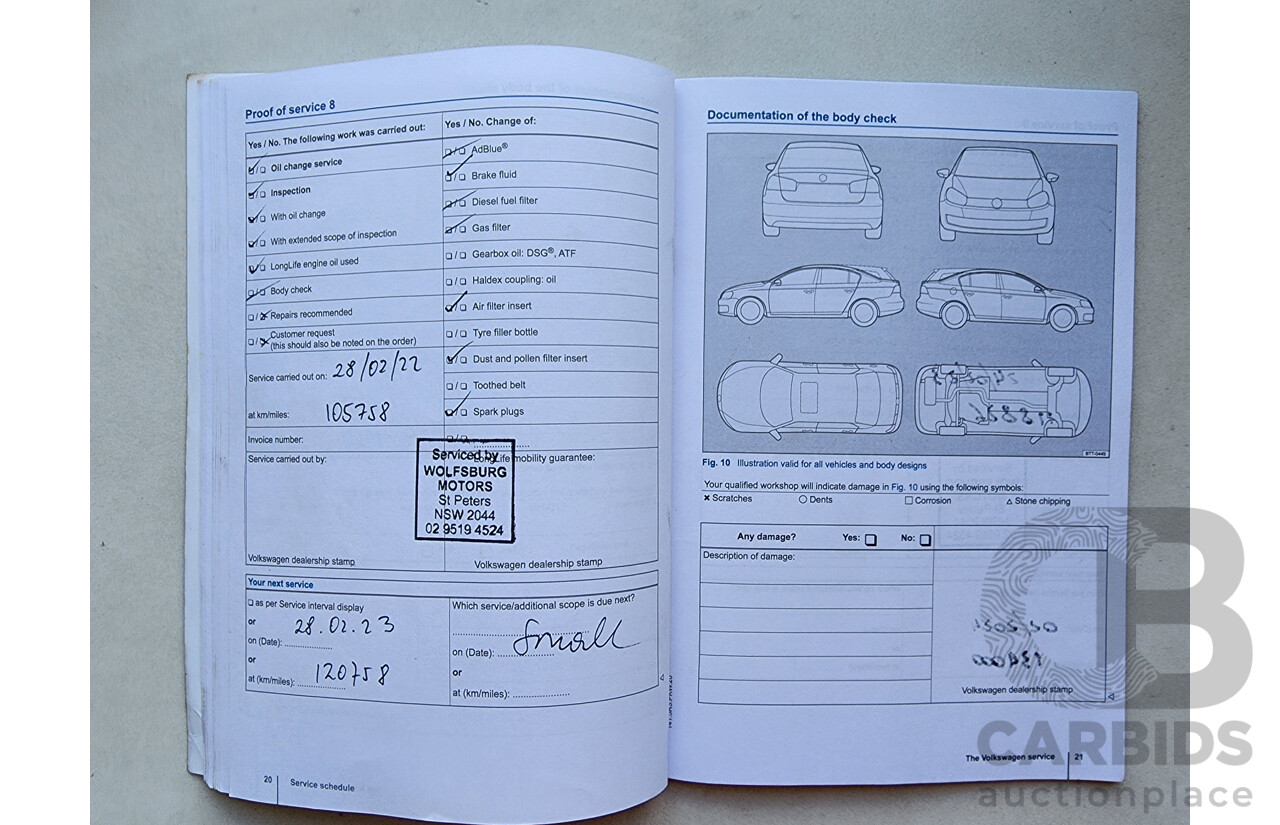 Proof of service 8
Yes / No. The following work was carried out:
☐/☐ Oil change service
☐/☐ Inspection
☐/☐ With oil change
☐/☐ With extended scope of inspection
☐/☐ LongLife engine oil used
☐/☐ Body check
☐/☐ Repairs recommended
☐/☐ Customer request
(this should also be noted on the order)
Service carried out on: 28/02/22
at km/miles: 105758
Invoice number:
Service carried out by:
Volkswagen dealership stamp
Yes / No. Change of:
☐/☐ AdBlue®
☐/☐ Brake fluid
☐/☐ Diesel fuel filter
☐/☐ Gas filter
☐/☐ Gearbox oil: DSG®, ATF
☐/☐ Haldex coupling: oil
☐/☐ Air filter insert
☐/☐ Tyre filler bottle
☐/☐ Dust and pollen filter insert
☐/☐ Toothed belt
☐/☐ Spark plugs
☐/☐
LongLife mobility guarantee:
Serviced by
WOLFSBURG
MOTORS
St Peters
NSW 2044
02 9519 4524
Volkswagen dealership stamp
Your next service
☐ as per Service interval display
or
28.02.23
on (Date):
or
120758
at (km/miles):
Which service/additional scope is due next?
Small
on (Date):
or
at (km/miles):
20 Service schedule
Documentation of the body check
BTT-0449
Fig. 10 Illustration valid for all vehicles and body designs
Your qualified workshop will indicate damage in Fig. 10 using the following symbols:
× Scratches ○ Dents □ Corrosion △ Stone chipping
Any damage? Yes: ☐ No: ☐
Description of damage:
Volkswagen dealership stamp
The Volkswagen service 21
CB
CARBIDS
auctionplace